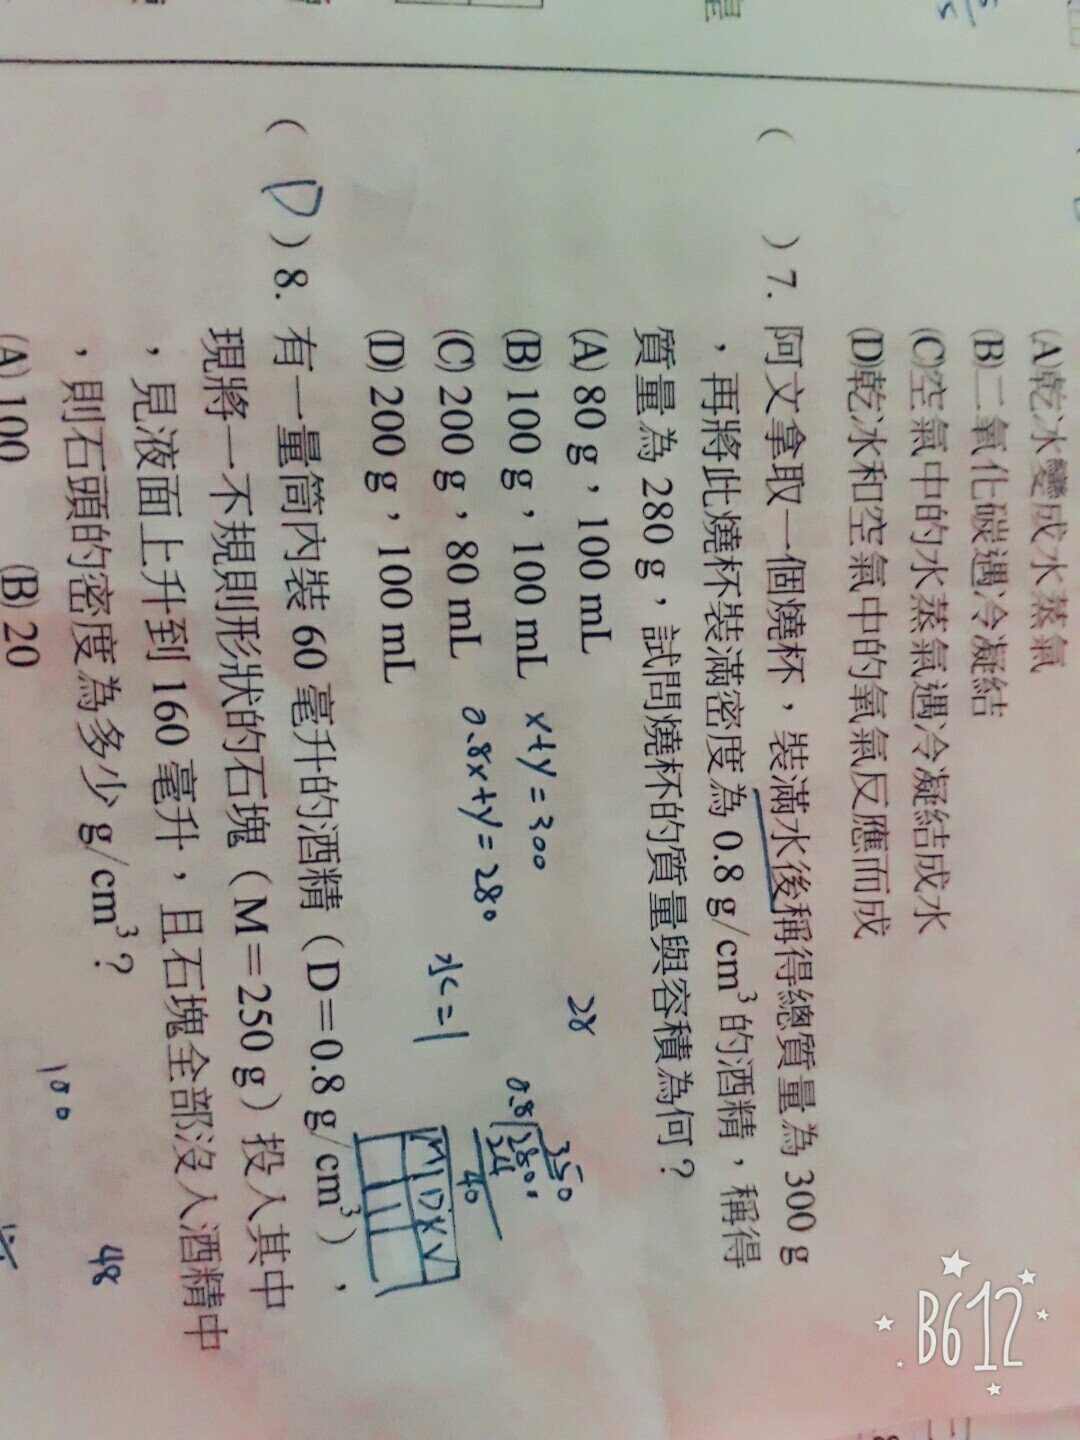 (A)乾冰變成水蒸氣
(B)二氧化碳遇冷凝結
(C)空氣中的水蒸氣遇冷凝結成水
(D)乾冰和空氣中的氧氣反應而成
(　)7. 阿文拿取一個燒杯，裝滿水後稱得總質量為 300 g
，再將此燒杯裝滿密度為 0.8 g/cm³ 的酒精，稱得
質量為 280 g，試問燒杯的質量與容積為何？
(A) 80 g，100 mL
28
(B) 100 g，100 mL x+y=300
(C) 200 g，80 mL 0.8x+y=280
(D) 200 g，100 mL
水=1
350
0.8
24
40
M D V
( D )8. 有一量筒內裝 60 毫升的酒精（D＝0.8 g/cm³），
現將一不規則形狀的石塊（M＝250 g）投入其中
，見液面上升到 160 毫升，且石塊全部沒入酒精中
，則石頭的密度為多少 g/cm³？
48
100
(A) 100 (B) 20
B612